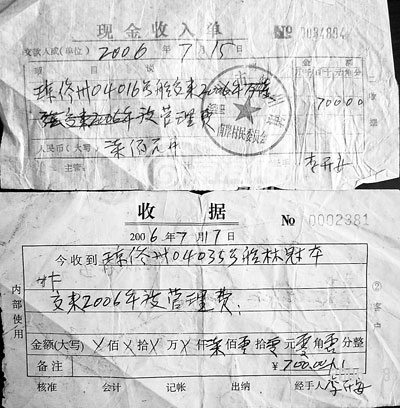 现金收入单
№ 0034884
交款人或(单位) 2006 年 7 月 15 日
项目 金额
琼儋州04016号船交来2006年村委
设管理费
70000
南岸村民委员会
人民币(大写) 柒佰元正
主管:
收据
№ 0002381
2006年7月17日
今收到琼儋州04035号船林财本
交来2006年设管理费.
金额(大写) 乂佰乂拾乂万乂仟柒佰零拾零元零角零分整
备注
¥700.00
内部使用
②客户
核准 会计 记帐 出纳 经手人